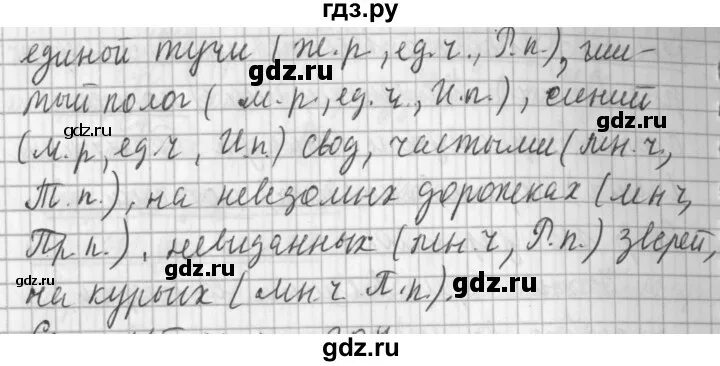 гдз.ру
единой тучи (ж.р, ед.ч., Р.п.), ши-
gdz.ru
тый полог (м.р, ед.ч., И.п.), синий
gdz.ru
gdz.ru
(м.р, ед.ч, И.п.) свод, частыми (мн.ч,
Т.п.), на неведомых дорожках (мн ч,
gdz.ru
Пр.п.), невиданных (мн.ч, Р.п.) зверей,
gdz.ru
на курьих (мн ч П.п.).
gdz.ru
gdz.ru